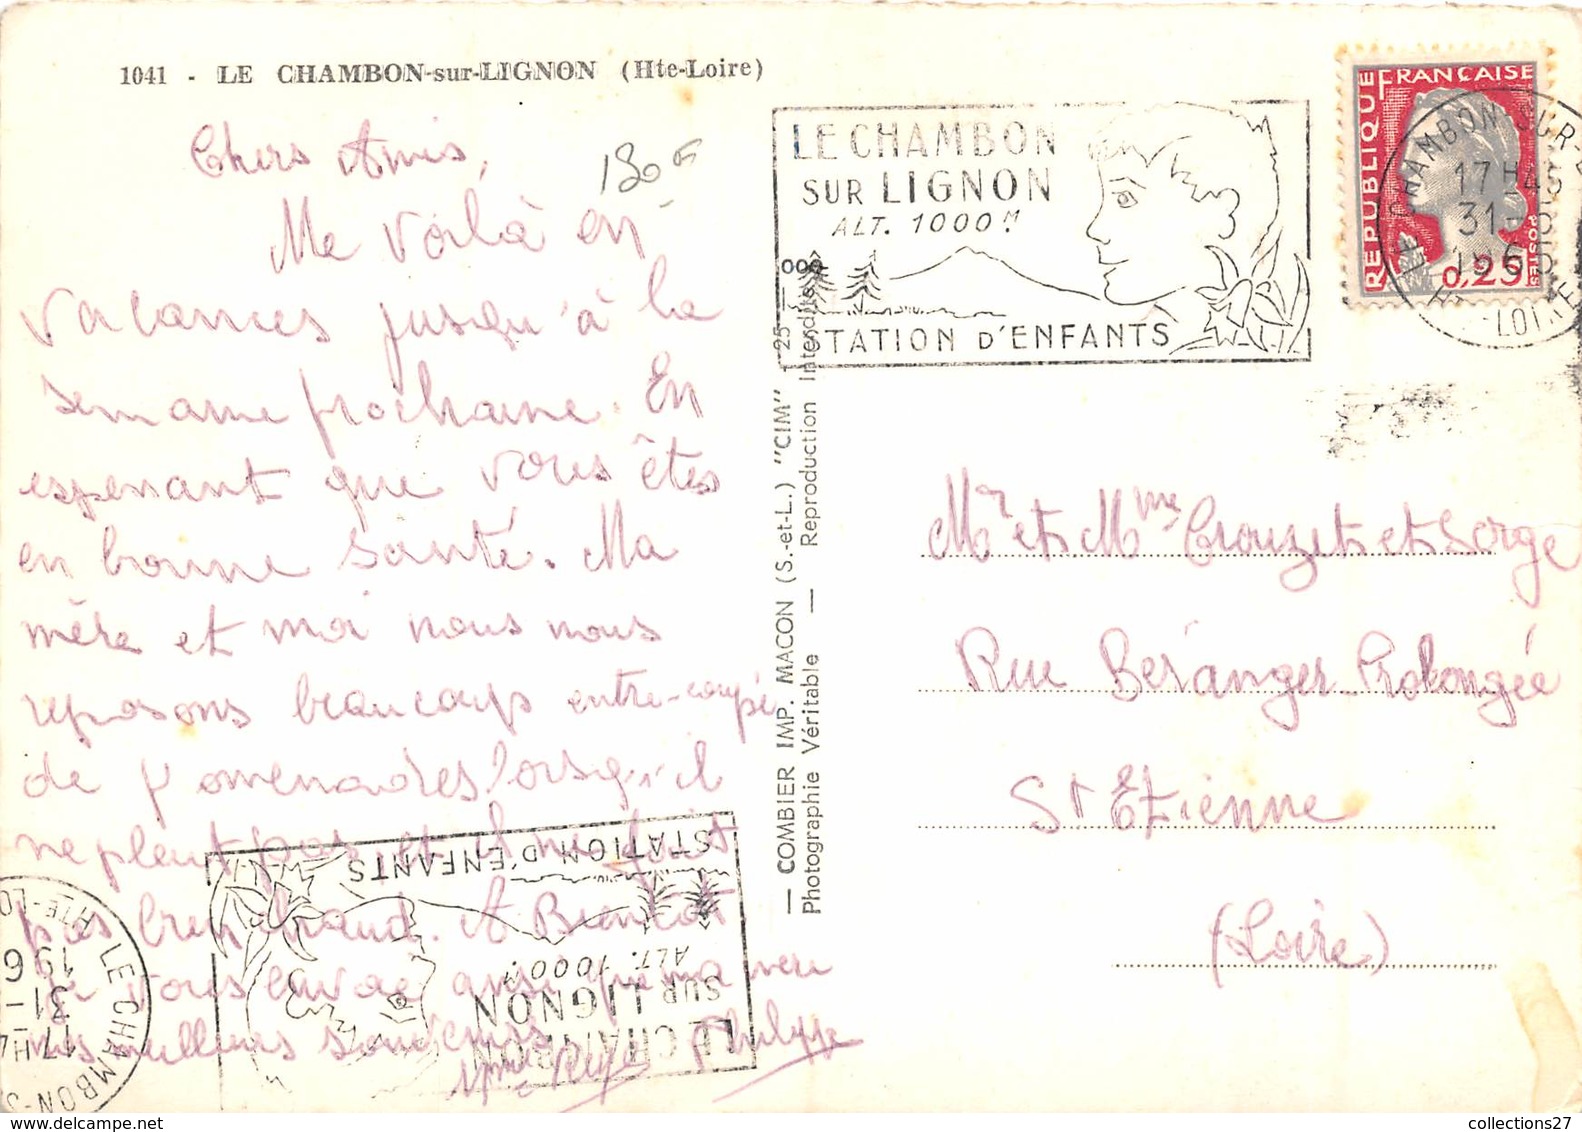 1041 - LE CHAMBON-sur-LIGNON (Hte-Loire)
Chers Amis,
130 F
Me voilà en
vacances jusqu'à la
semaine prochaine. En
esperant que vous êtes
en bonne santé. Ma
mère et moi nous nous
reposons beaucoup entre-coupé
de promenades lorsqu'il
ne pleut pas et il ne fait
pas bien chaud. A Bientôt
je vous envoie ainsi que ma mère
mes meilleurs souvenirs
Mme Philippe
LE CHAMBON
SUR LIGNON
ALT. 1000 M
STATION D'ENFANTS
REPUBLIQUE FRANÇAISE
POSTES
0,25
LE CHAMBON-SUR-L
17 H 45
31
HTE-LOIRE
— COMBIER IMP. MACON (S.-et-L.) "CIM" T 25 —
Photographie Véritable — Reproduction Interdite
Mr et Mme Crouzet et Serge
Rue Béranger Prolongée
St Etienne
(Loire)
STATION D'ENFANTS
ALT. 1000 M
SUR LIGNON
LE CHAMBON
LE CHAMBON-S
17 H 4
31 -
196
HTE-LO
collections27